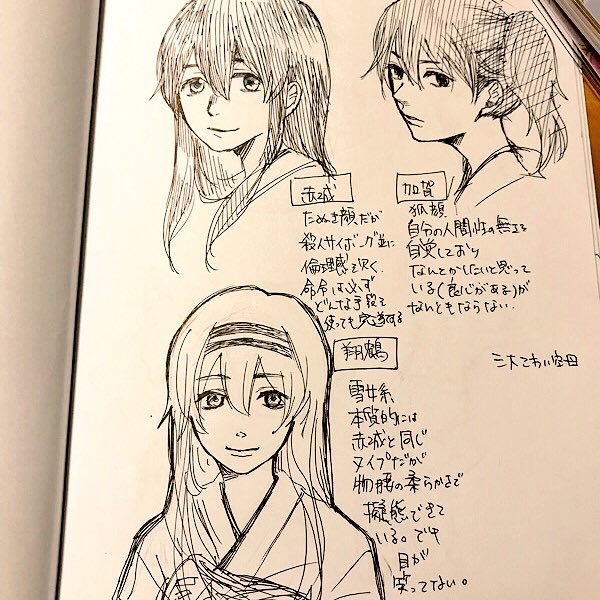 赤城
たぬき顔だが
殺人サイボーグ並に
倫理感を欠く.
命令は必ず
どんな手段を
使っても完遂する
加賀
狐顔
自分の人間性の無さを
自覚しており
なんとかしたいと思って
いる(良心がある)が
なんともならない.
翔鶴
雪女系
本質的には
赤城と同じ
タイプだが
物腰の柔らかさで
擬態できて
いる。でも
目が
笑ってない。
三大こわい空母